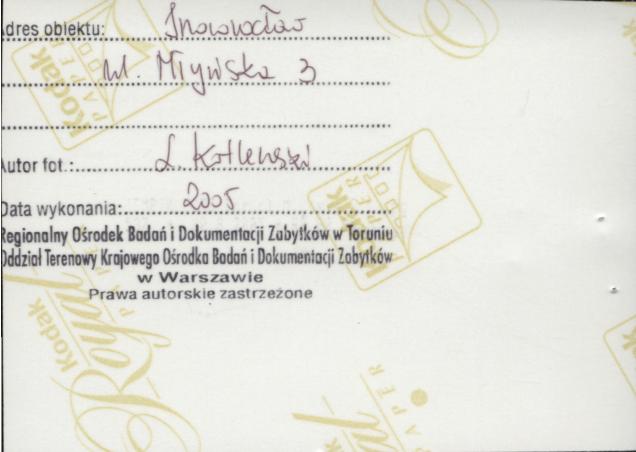 dres obiektu: Inowrocław
ul. Młyńska 3
utor fot.: L. Kotlewski
Data wykonania: 2005
Regionalny Ośrodek Badań i Dokumentacji Zabytków w Toruniu
Oddział Terenowy Krajowego Ośrodka Badań i Dokumentacji Zabytków
w Warszawie
Prawa autorskie zastrzeżone
Kodak
PAPER
Kodak
PAPER
Kodak
Royal
PAPER
PAPER